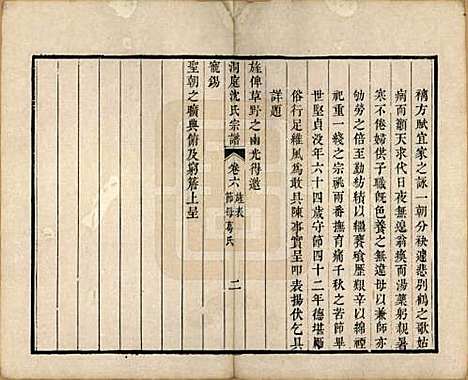 褵方賦宜家之詠一朝分袂遽悲別鶴之歌姑
病而籲天求代日夜無遑翁瘓而湯藥躬親暑
寒不倦婦供子職旣色養之無違母以兼師亦
劬勞之倍至勤紡績以繼饔飧歷艱辛以綿禋
祀重一綫之宗祧兩番撫痛千秋之苦節畢
世堅貞沒年六十四歲守節四十二年德堪勵
俗行足維風為敢具陳事實呈叩表揚伏乞具
詳題
旌俾草野之幽光得邀
洞庭沈氏宗譜
卷六
旌表
節母葛氏
二
寵錫
聖朝之曠典俯及窮簷上呈